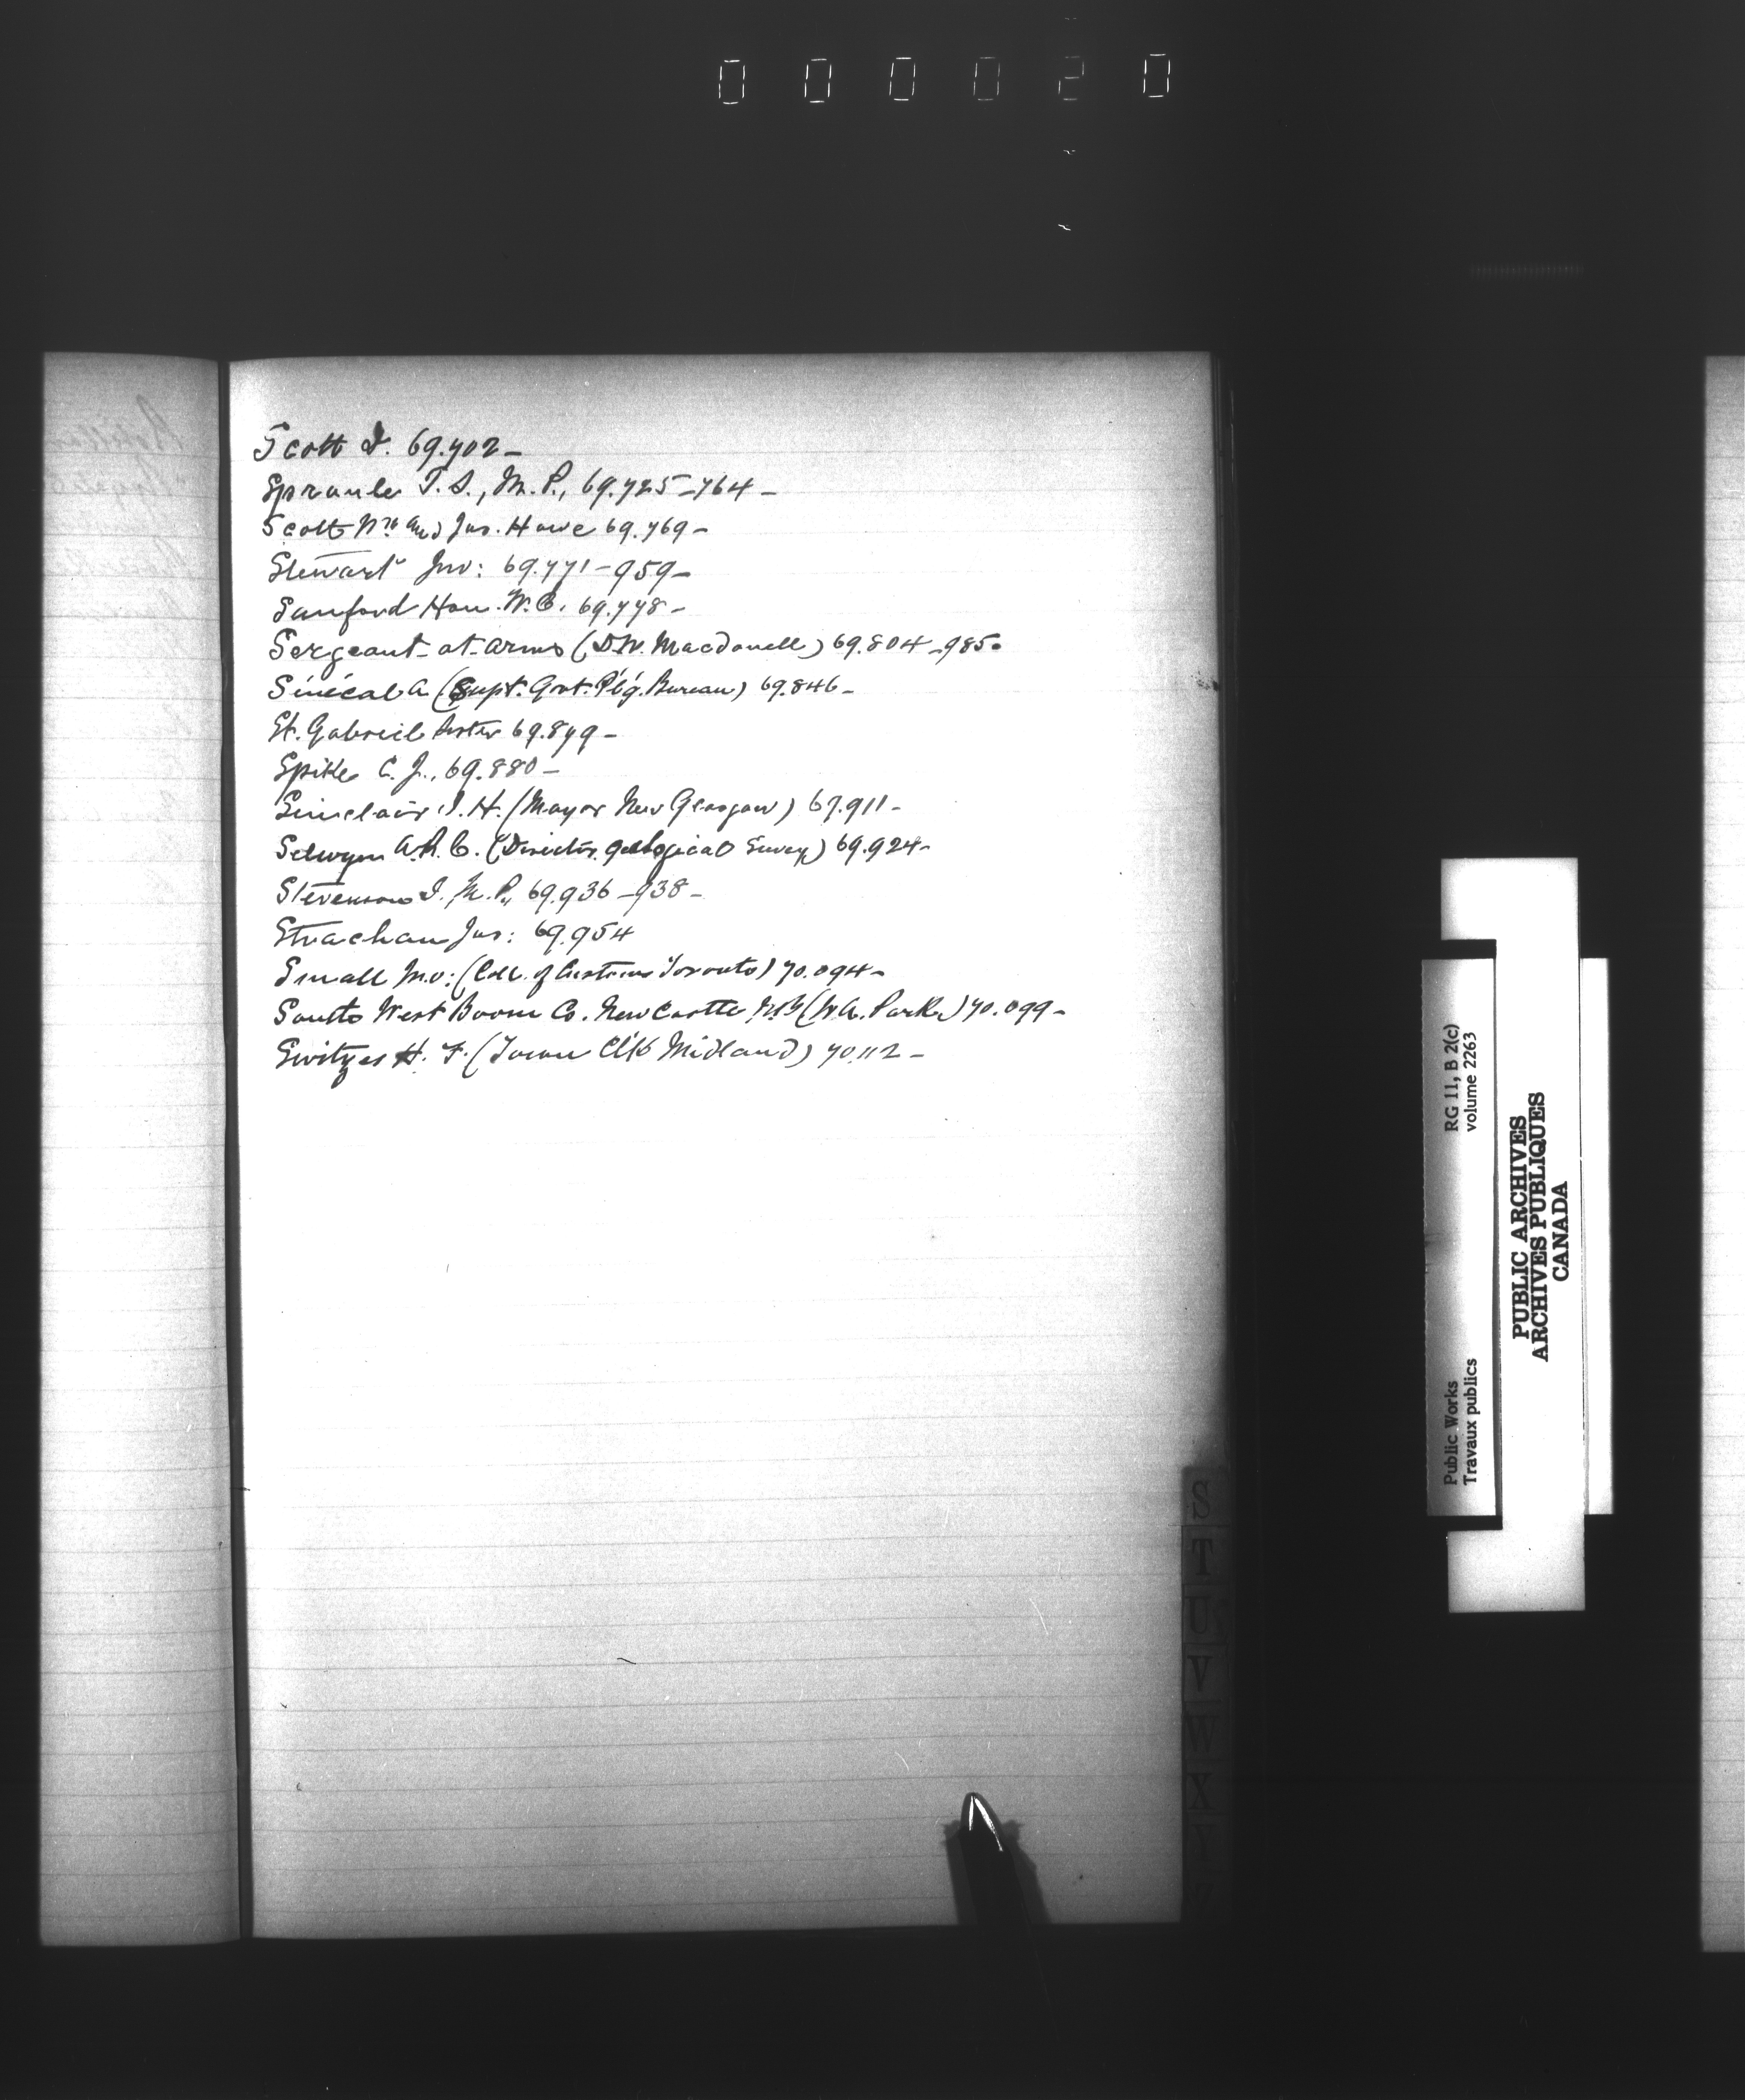 000020
Scott I. 69.702-
Sproule T.S., M.P., 69.725-764-
Scott Wm. and Jas. Howe 69.769-
Stewart Jno: 69.771-959-
Sanford Hon. W.E. 69.778-
Sergeant-at-arms (D.W. Macdonell) 69.804-985.
Sénécal A. (Supt. Govt. P't'g. Bureau) 69.846-
St. Gabriel 69.879-
Spike C.J., 69.880-
Sinclair J.H. (Mayor New Glasgow) 69.911-
Selwyn A.R.C. (Director geological Survey) 69.924-
Stevenson J., M.P., 69.936-938-
Strachan Jas: 69.954
Small Jno: (Coll. of Customs Toronto) 70.094-
South West Boom Co. Newcastle N.B (W.A. Park) 70.099-
Switzer H. F. (Town Cl'k Midland) 70.112-
S
T
U
V
W
X
Y
Z
Public Works
Travaux publics
RG 11, B 2(c)
volume 2263
PUBLIC ARCHIVES
ARCHIVES PUBLIQUES
CANADA